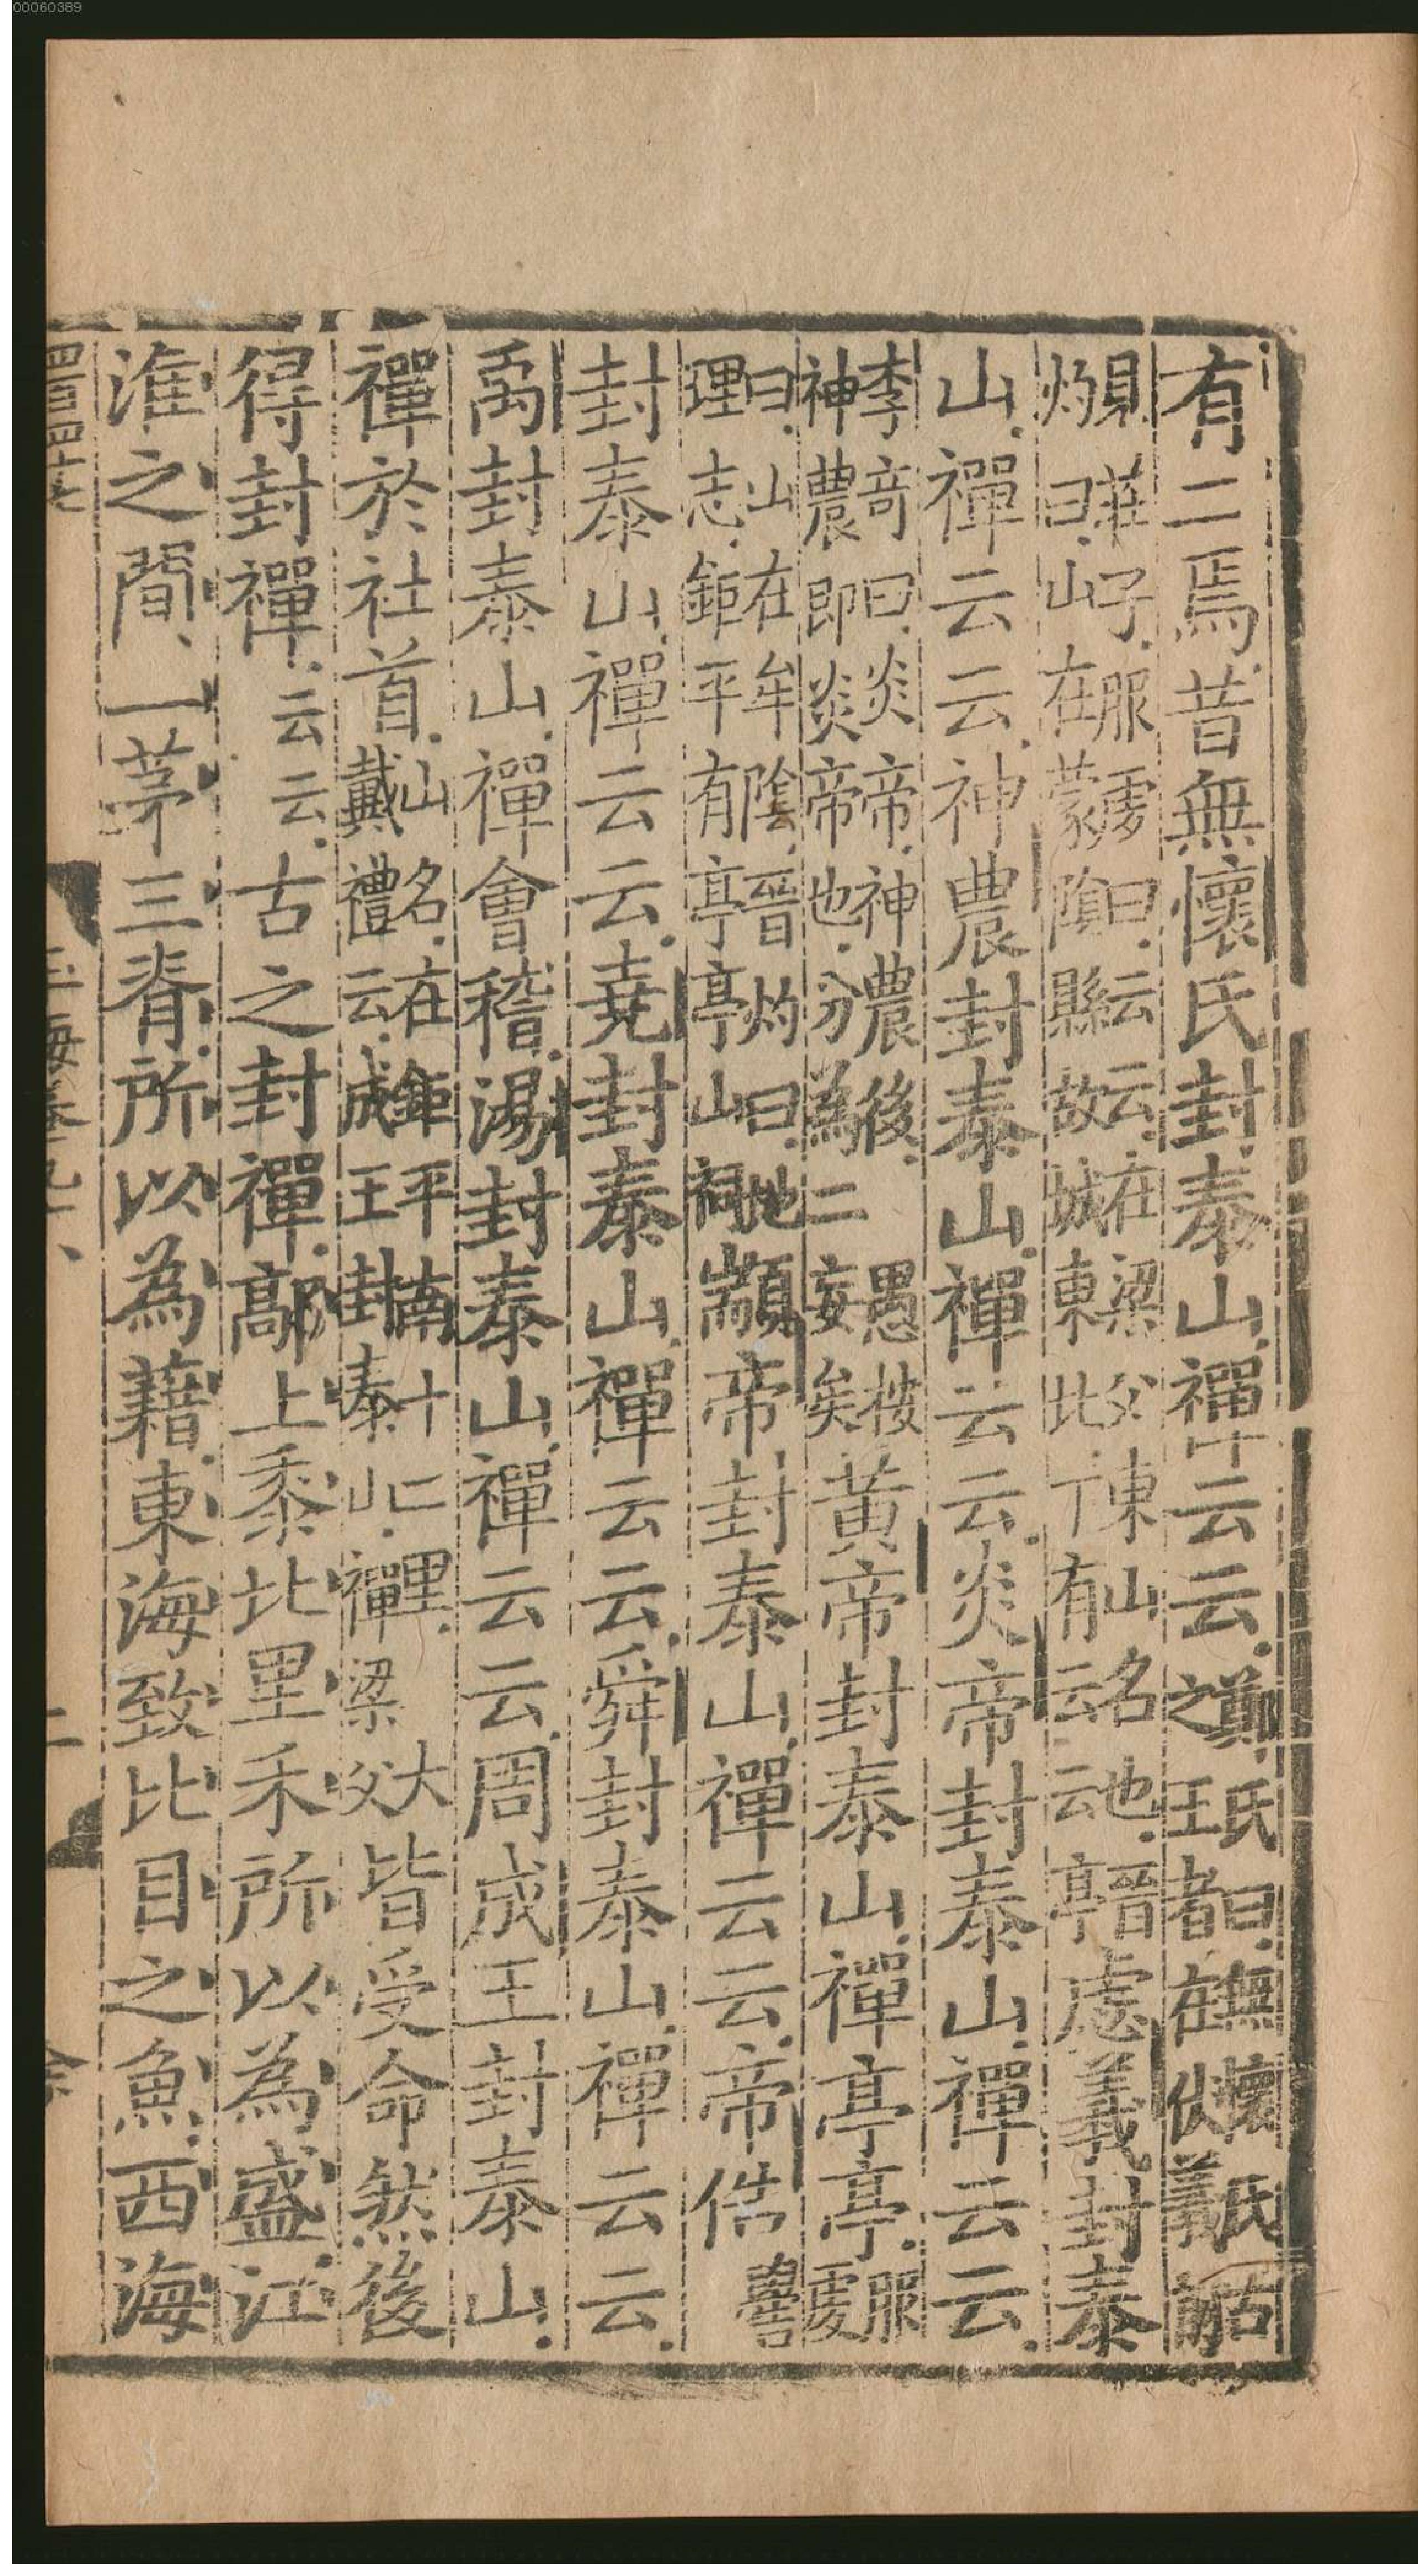 有二焉昔無懷氏封泰山禪云云鄭氏曰無懷氏古之王者在伏羲前
見莊子服虔曰云云在梁父東山名也晉灼曰山在蒙陰縣故城東北下有云云亭虙義封泰
山禪云云神農封泰山禪云云炎帝封泰山禪云云
李奇曰炎帝神農後神農即炎帝也分為二愚按妄矣黃帝封泰山禪亭亭服虔
曰山在牟陰晉灼曰地理志鉅平有亭亭山祠顓帝封泰山禪云云帝俈嚳
封泰山禪云云堯封泰山禪云云舜封泰山禪云云
禹封泰山禪會稽湯封泰山禪云云周成王封泰山
禪於社首山名在鉅平南十二里大戴禮云成王封泰山禪梁父皆受命然後
得封禪云云古之封禪鄗上黍北里禾所以為盛江
淮之間一茅三脊所以為藉東海致比目之魚西海
四百四十七
二
00060389